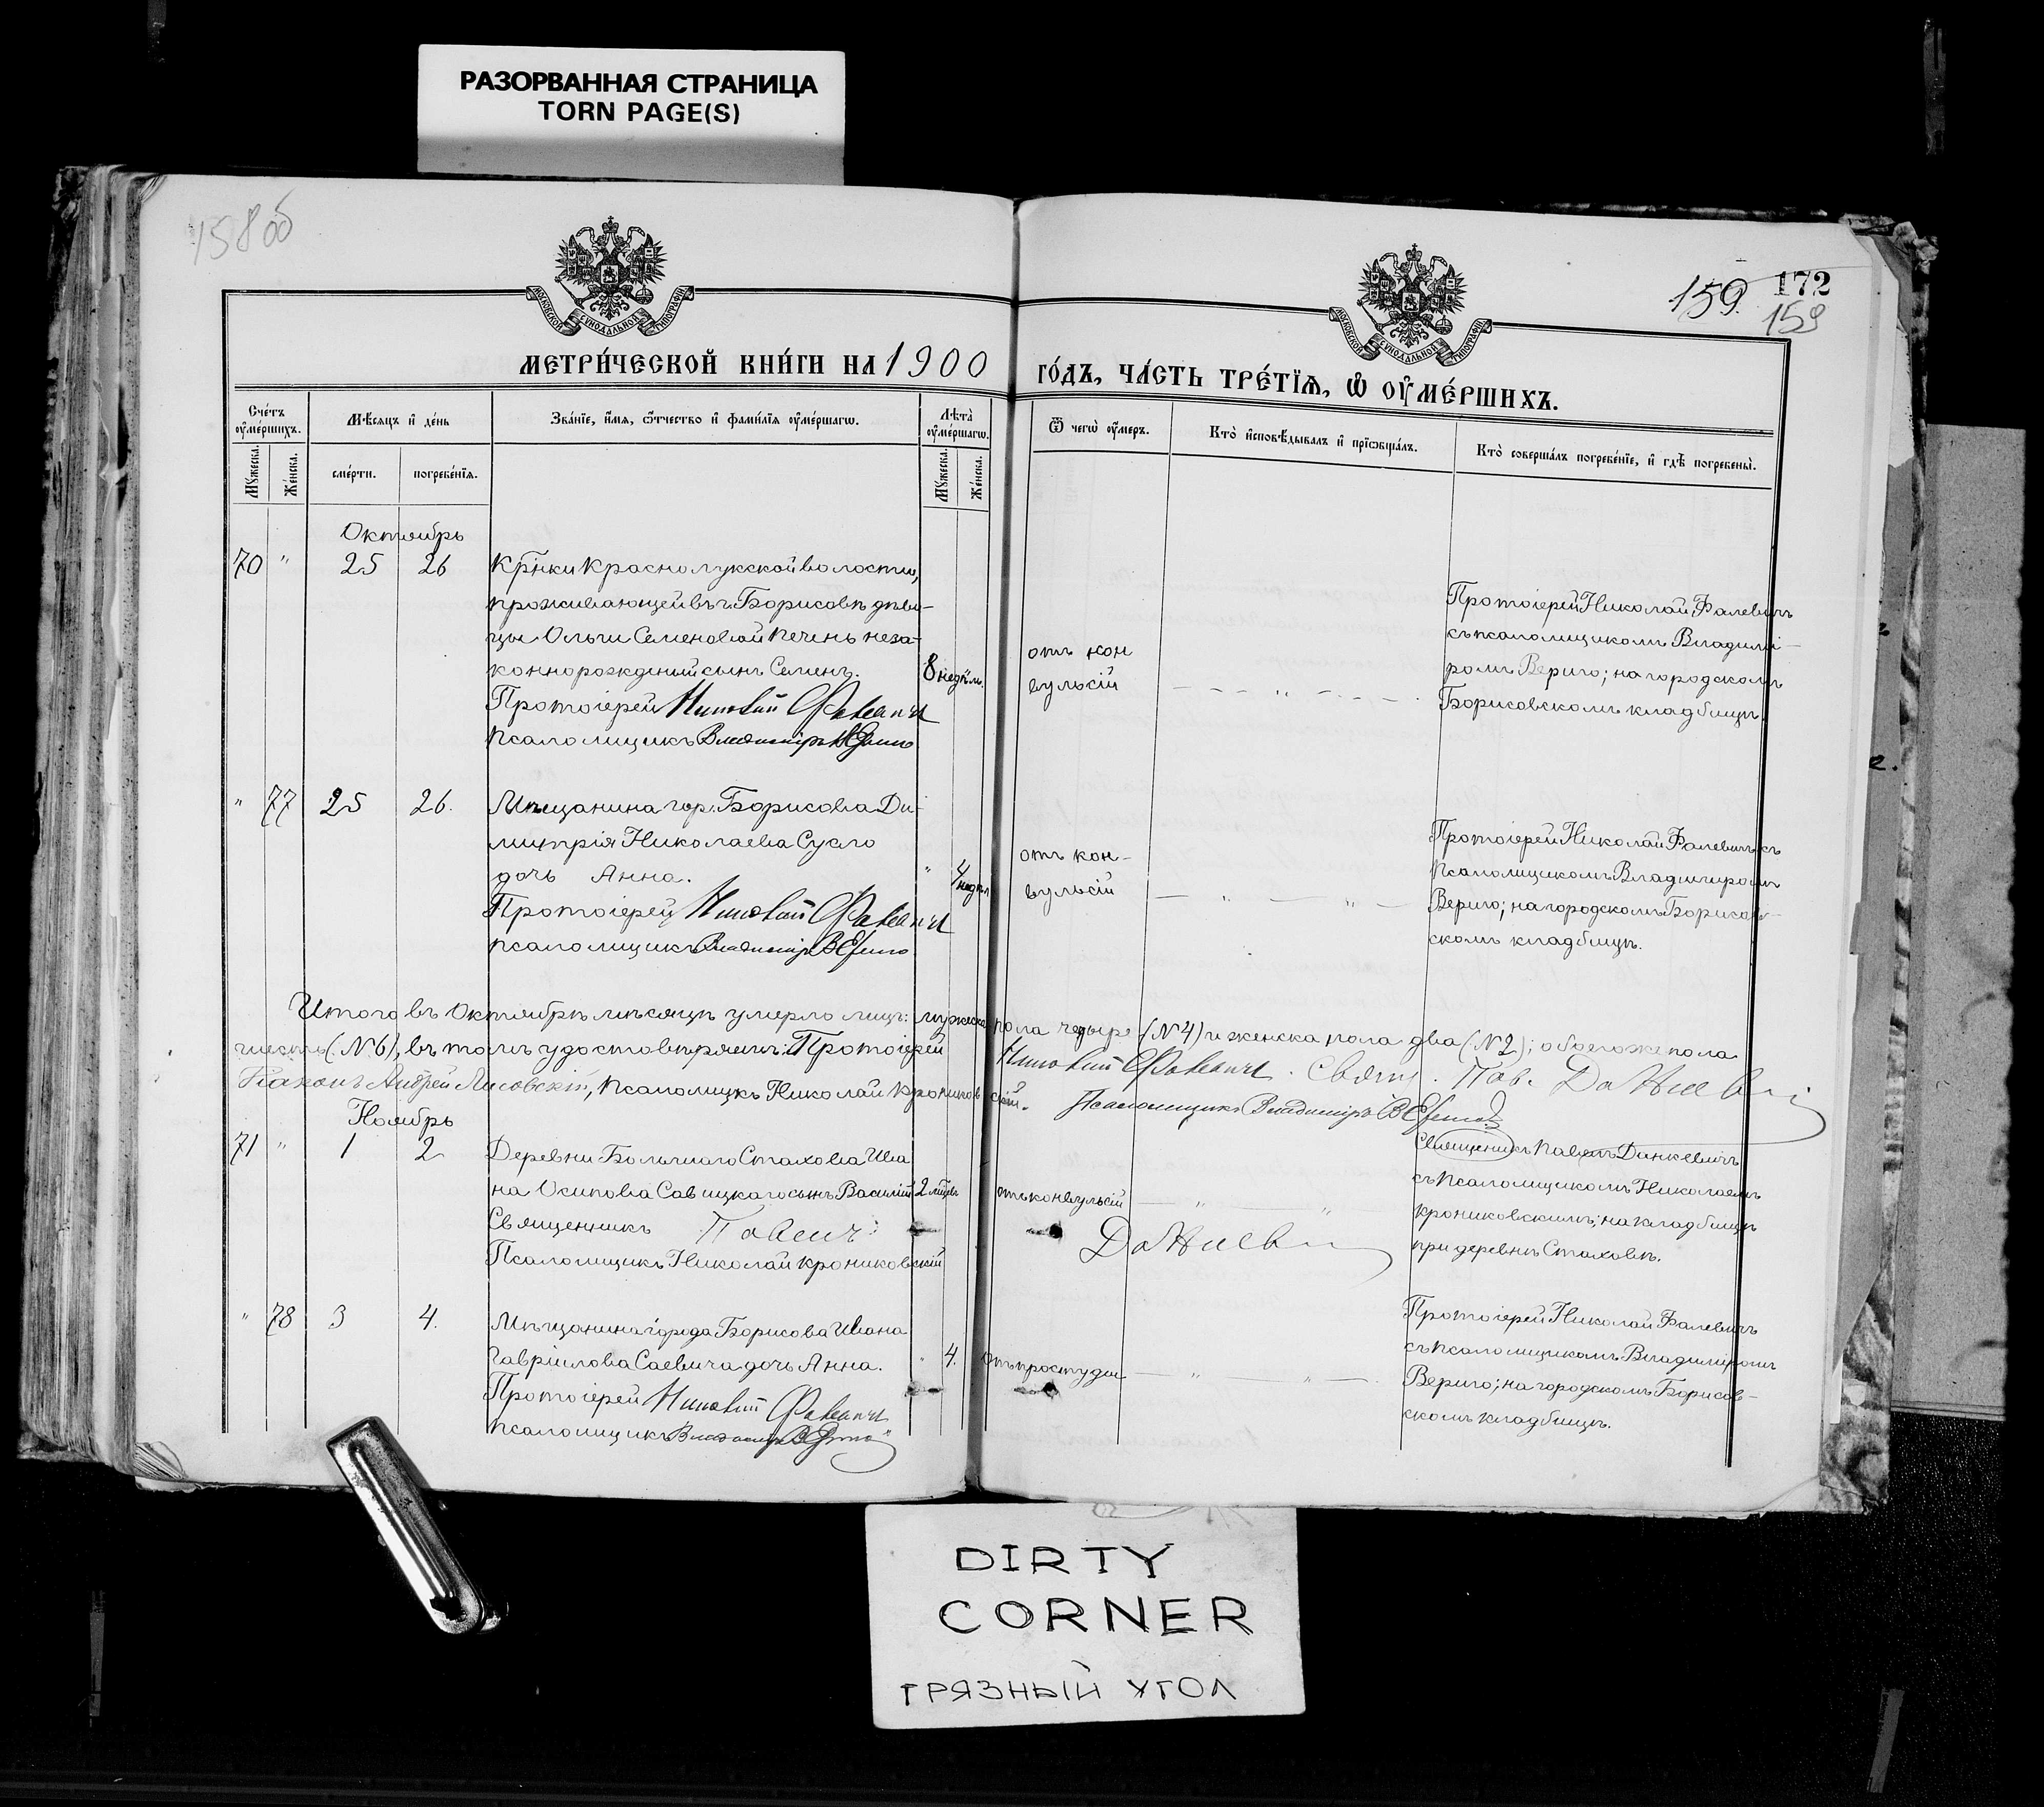 РАЗОРВАННАЯ СТРАНИЦА
TORN PAGE(S)
158 об
159.
172
159
МОСКОВСКОЙ СѴНОДАЛЬНОЙ ТИПОГРАФІИ
МОСКОВСКОЙ СѴНОДАЛЬНОЙ ТИПОГРАФІИ
МЕТРИ́ЧЕСКОЙ КНИ́ГИ НА 1900
ГО́ДЪ, ЧА́СТЬ ТРЕ́ТІѦ, Ѡ҆ ОУ҆МЕ́РШИХЪ.
Сче́тъ оу҆ме́ршихъ.
Мꙋ́жеска.
Же́нска.
Мѣ́сяцъ и҆ де́нь
сме́рти.
погребе́нїя.
Зва́нїе, и҆́мя, ѻ҆́тчество и҆ фами́лїя оу҆ме́ршагѡ.
Лѣ́та оу҆ме́ршагѡ.
Мꙋ́жеска.
Же́нска.
Ѿ чегѡ̀ оу҆́меръ.
Кто̀ и҆сповѣ́дывалъ и҆ прїѡбща́лъ.
Кто̀ соверша́лъ погребе́нїе, и҆ гдѣ̀ погребены̀.
Октябрь
70 " 25 26
Кр̃нки Краснолукской волости,
проживающей въ г. Борисовѣ дѣви-
цы Ольги Семеновой Печень неза-
коннорожденный сынъ Семенъ.
8 недѣль.
Протоіерей Николай Фалевичъ
Псаломщикъ Владиміръ Вериго
отъ кон
вульсій
Протоіерей Николай Фалевичъ
съ псаломщикомъ Владимі-
ромъ Вериго; на городскомъ
Борисовскомъ кладбищѣ.
" 77 25 26.
Мѣщанина гор. Борисова Ди-
митрія Николаева Сусло
дочь Анна.
" 4 недѣл
Протоіерей Николай Фалевичъ
псаломщикъ Владиміръ Вериго
отъ кон-
вульсій
Протоіерей Николай Фалевичъ съ
псаломщикомъ Владимиромъ
Вериго; на городскомъ Борисов-
скомъ кладбищѣ.
Итого въ Октябрѣ мѣсяцѣ умерло лицъ: мужеска пола четыре (№ 4) и женска пола два (№ 2); обоего же пола
шесть (№ 6), въ томъ удостовѣряемъ: Протоіерей Николай Фалевичъ. Свящ. Пав.
Андрей Лисовскій, Псаломщикъ Николай Крониковскій. Псаломщикъ Владиміръ Вериго
Ноябрь
71 " 1 2
Деревни Большаго Стахова Ива
на Осипова Савицкаго сынъ Василій
2 мѣсц.
Священникъ Павелъ
Псаломщикъ Николай Крониковскій
отъ конвульсій
Священникъ Павелъ Динкевичъ
съ псаломщикомъ Николаемъ
Крониковскимъ; на кладбищѣ
при деревнѣ Стаховѣ.
" 78 3 4.
Мѣщанина города Борисова Ивана
Гавріилова Саевича дочь Анна.
" 4.
Протоіерей Николай Фалевичъ
псаломщикъ Владиміръ Вериго
отъ простуды
Протоіерей Николай Фалевичъ
съ псаломщикомъ Владиміромъ
Вериго; на городскомъ Борисов-
скомъ кладбищѣ.
DIRTY
CORNER
ГРЯЗНЫЙ УГОЛ